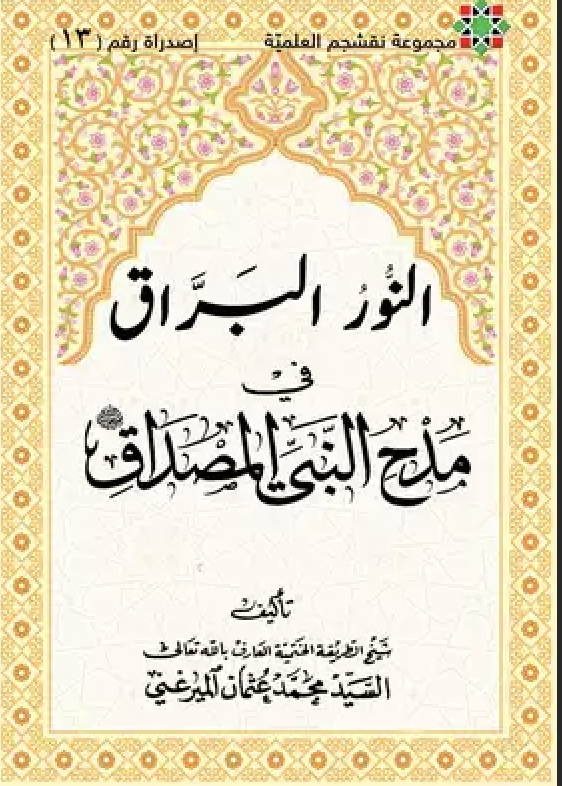 مجموعة نقشجم العلميّة إصدراة رقم (١٣)
النُّورُ البَرَّاق
في
مَدْحِ النَّبيِّ المِصْدَاقِ ﷺ
تأليف
شيخ الطريقة الختمية العارف بالله تعالى
السَّيِّد محمَّد عُثمان الميرغني